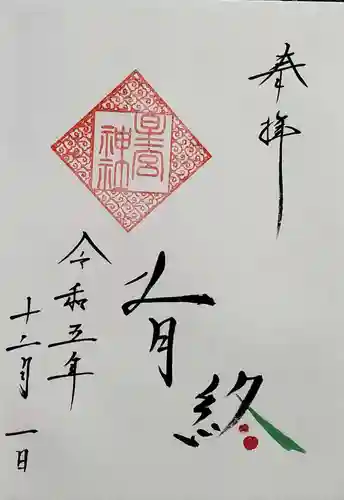 奉拝
星宮
神社
有
終
令和五年
十二月一日